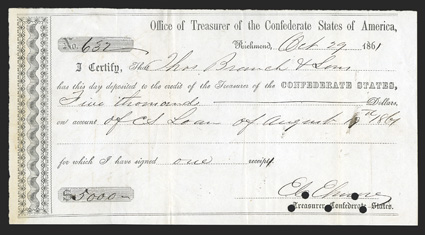 Office of Treasurer of the Confederate States of America,
No. 632 Richmond, Oct 29 1861
I Certify, That Thos Branch & Sons
has this day deposited to the credit of the Treasurer of the CONFEDERATE STATES,
Five thousand Dollars,
on account of CS Loan of August 1861
for which I have signed one receipt
$5000 E C Elmore
Treasurer Confederate States.